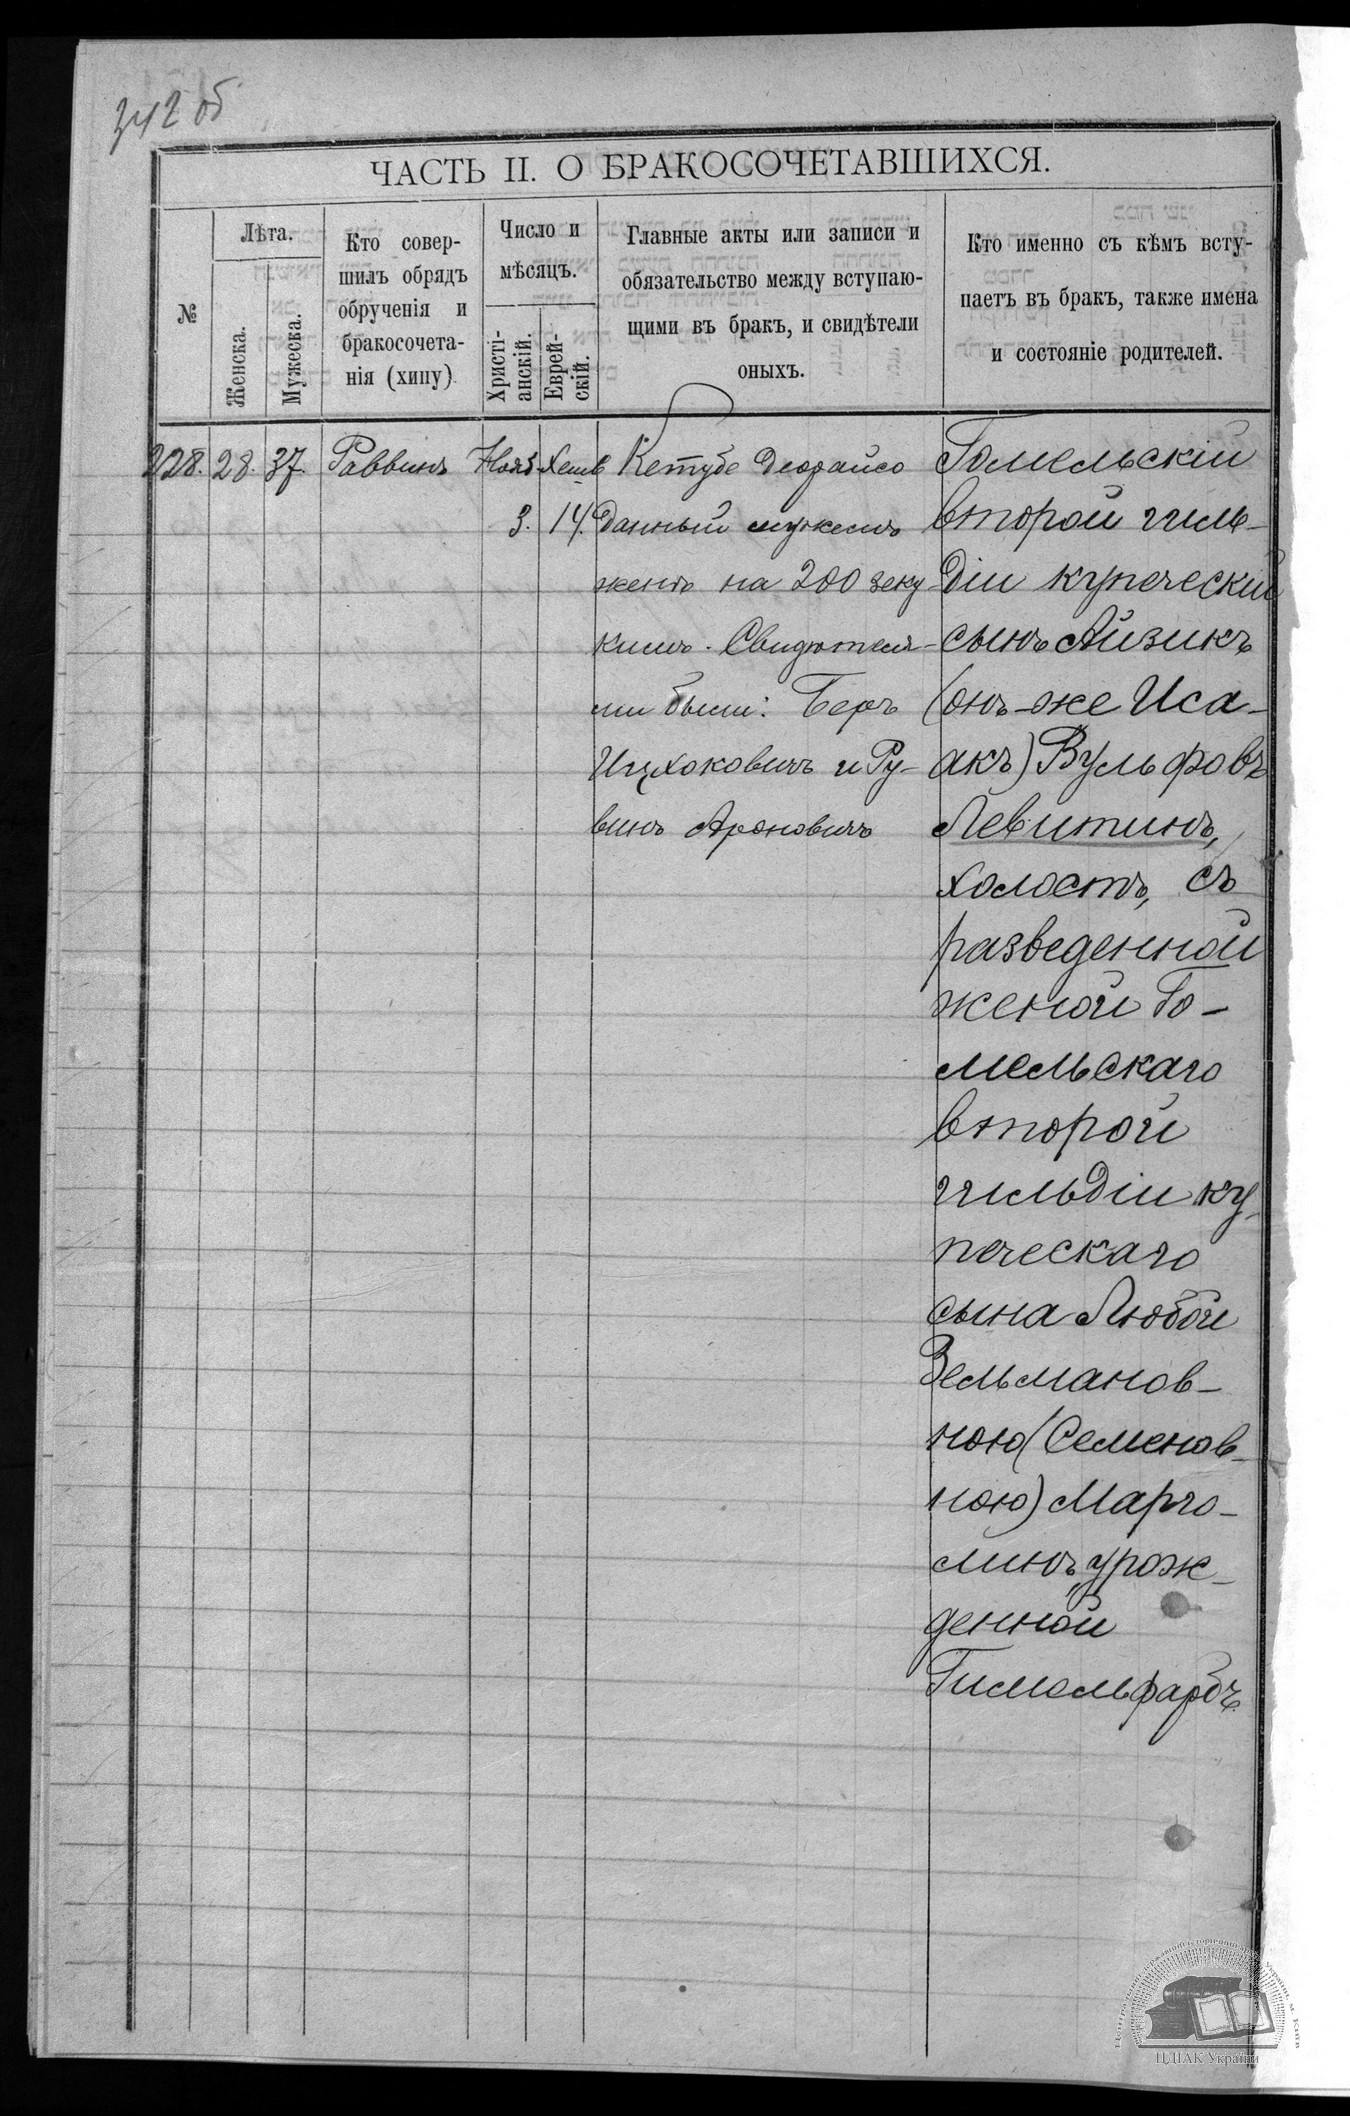 342 об
ЧАСТЬ II. О БРАКОСОЧЕТАВШИХСЯ.
№
Лѣта.
Женска.
Мужеска.
Кто совер-
шилъ обрядъ
обрученія и
бракосочета-
нія (хипу)
Число и
мѣсяцъ.
Христі-
анскій.
Еврей-
скій.
Главные акты или записи и
обязательство между вступаю-
щими въ бракъ, и свидѣтели
оныхъ.
Кто именно съ кѣмъ всту-
паетъ въ бракъ, также имена
и состояніе родителей.
228.
28.
37.
Раввинъ
Нояб.
3.
Хешв
14.
Кетубе Деорайсо
данный мужемъ
женѣ на 200 зеку
кимъ. Свидѣтеля-
ми были: Беръ
Ицхоковичъ и Ру-
винъ Ароновичъ
Гомельскій
второй гиль-
діи купеческій
сынъ Айзикъ
(онъ-же Иса-
акъ) Вульфовъ
Левитинъ,
холостъ, съ
разведенной
женой Го-
мельскаго
второй
гильдіи ку-
печескаго
сына Любой
Зельманов-
ною (Семенов-
ною) Марго-
линъ, урож-
денной
Гимельфарбъ.
ЦДІАК України